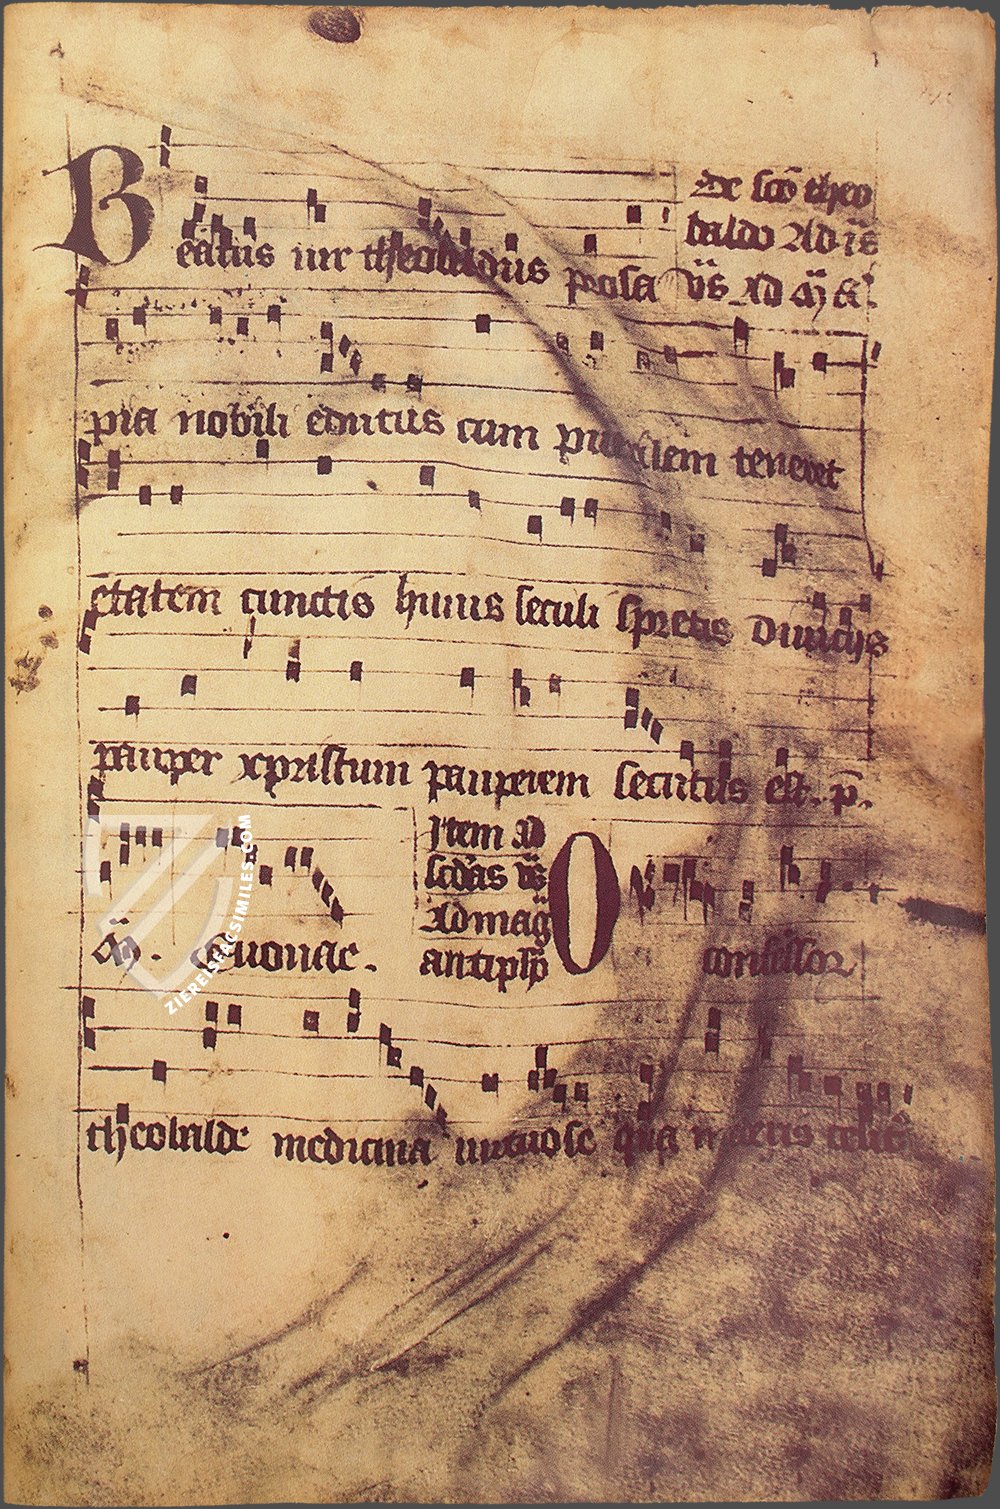 De sco theo
baldo Ad is
Beatus uir theobaldus prosa us Ad
pia nobili editus cum puerilem teneret
etatem cunctis huius seculi spretis diuicijs
pauper xpristum pauperem secutus est. p.
Item Ad
scdas us
Euouae. Ad mag
antiph O confessor
theobalde medicina uirtuose qua celit
ZIEREISFACSIMILES.COM